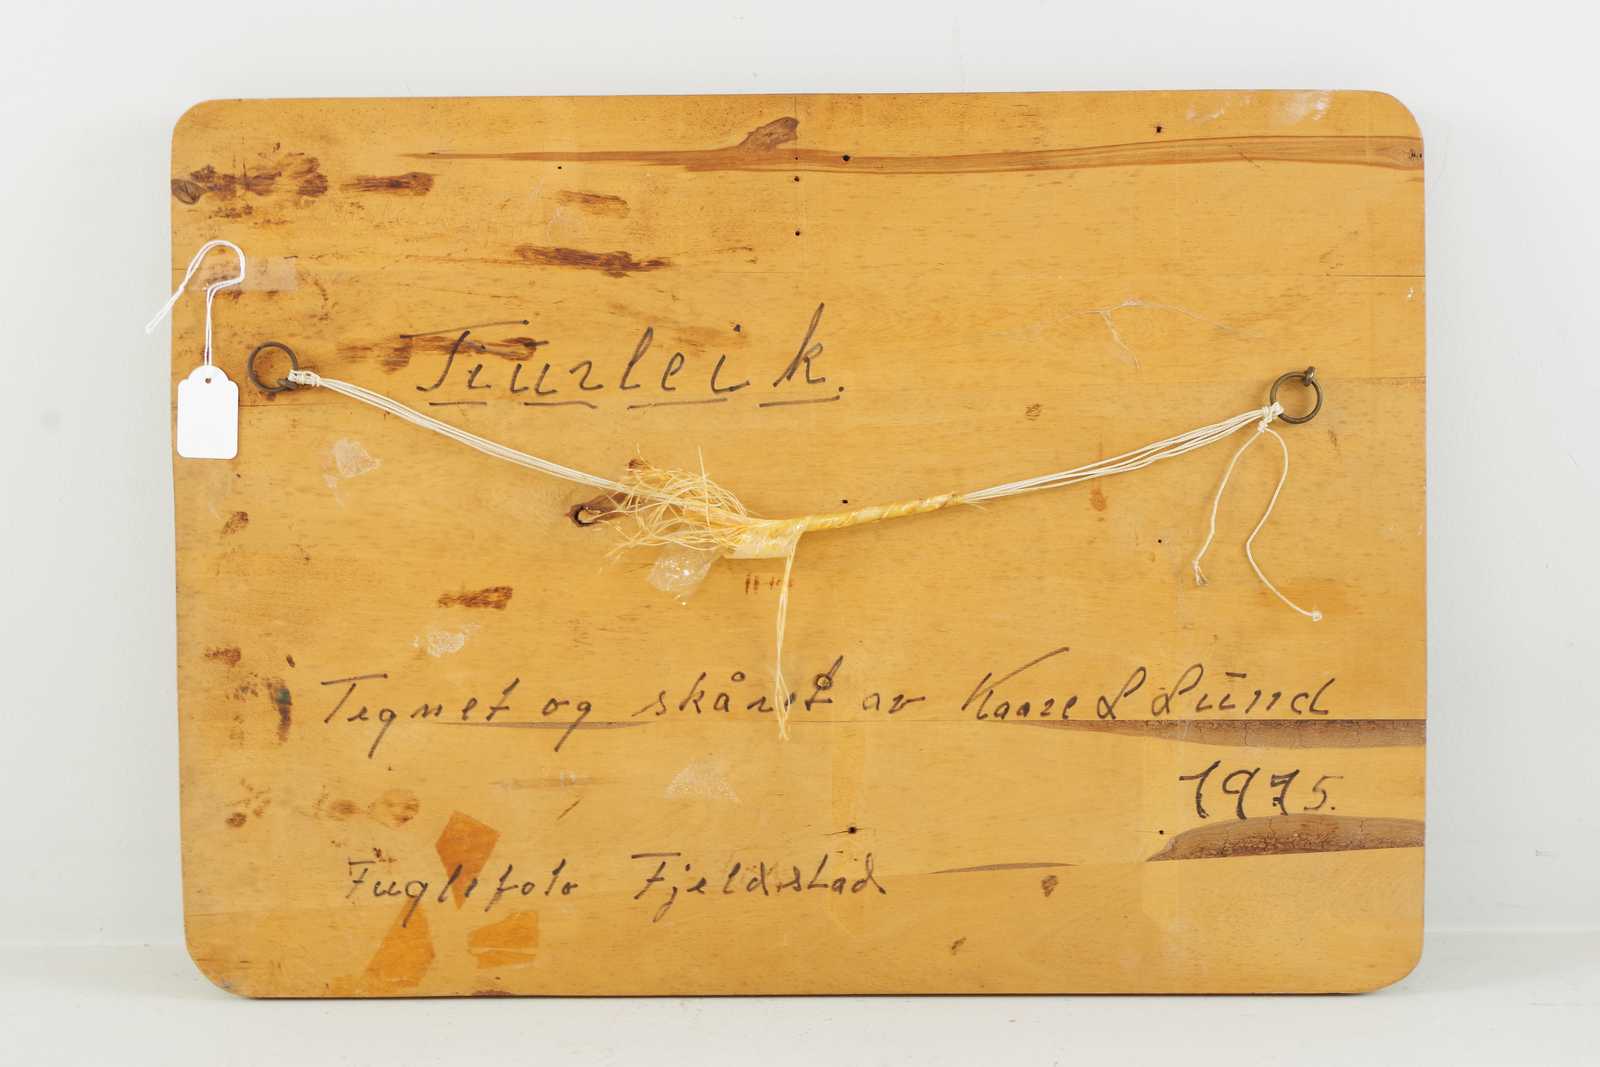 Tiurleik.
Tegnet og skåret av Kaare L Lund
1975.
Fuglefoto Fjeldstad